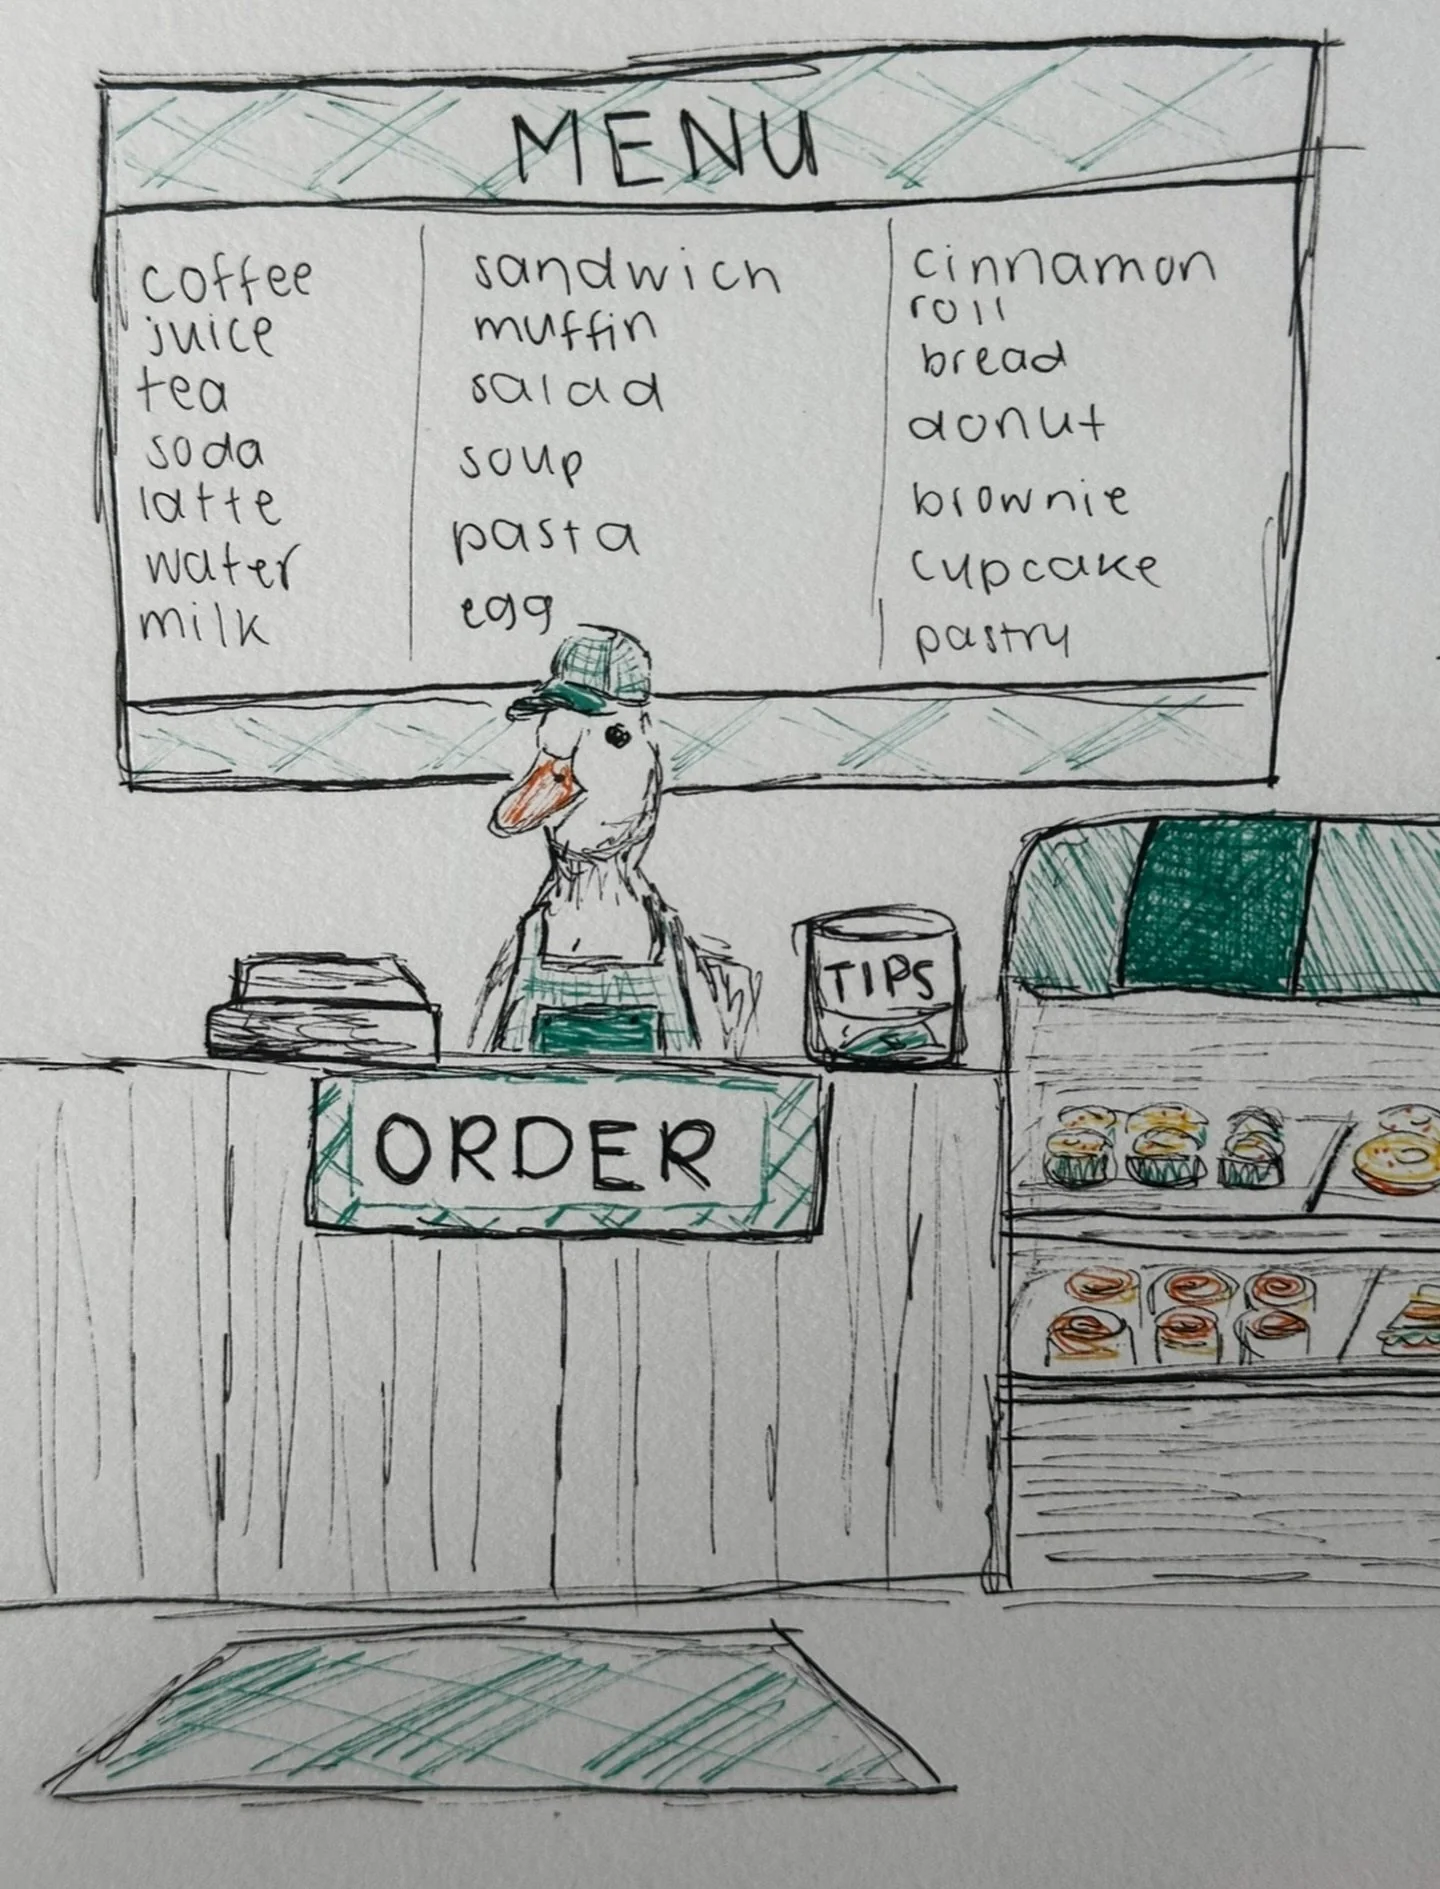 MENU
coffee
juice
tea
soda
latte
water
milk
sandwich
muffin
salad
soup
pasta
egg
cinnamon
roll
bread
donut
brownie
cupcake
pastry
TIPS
ORDER